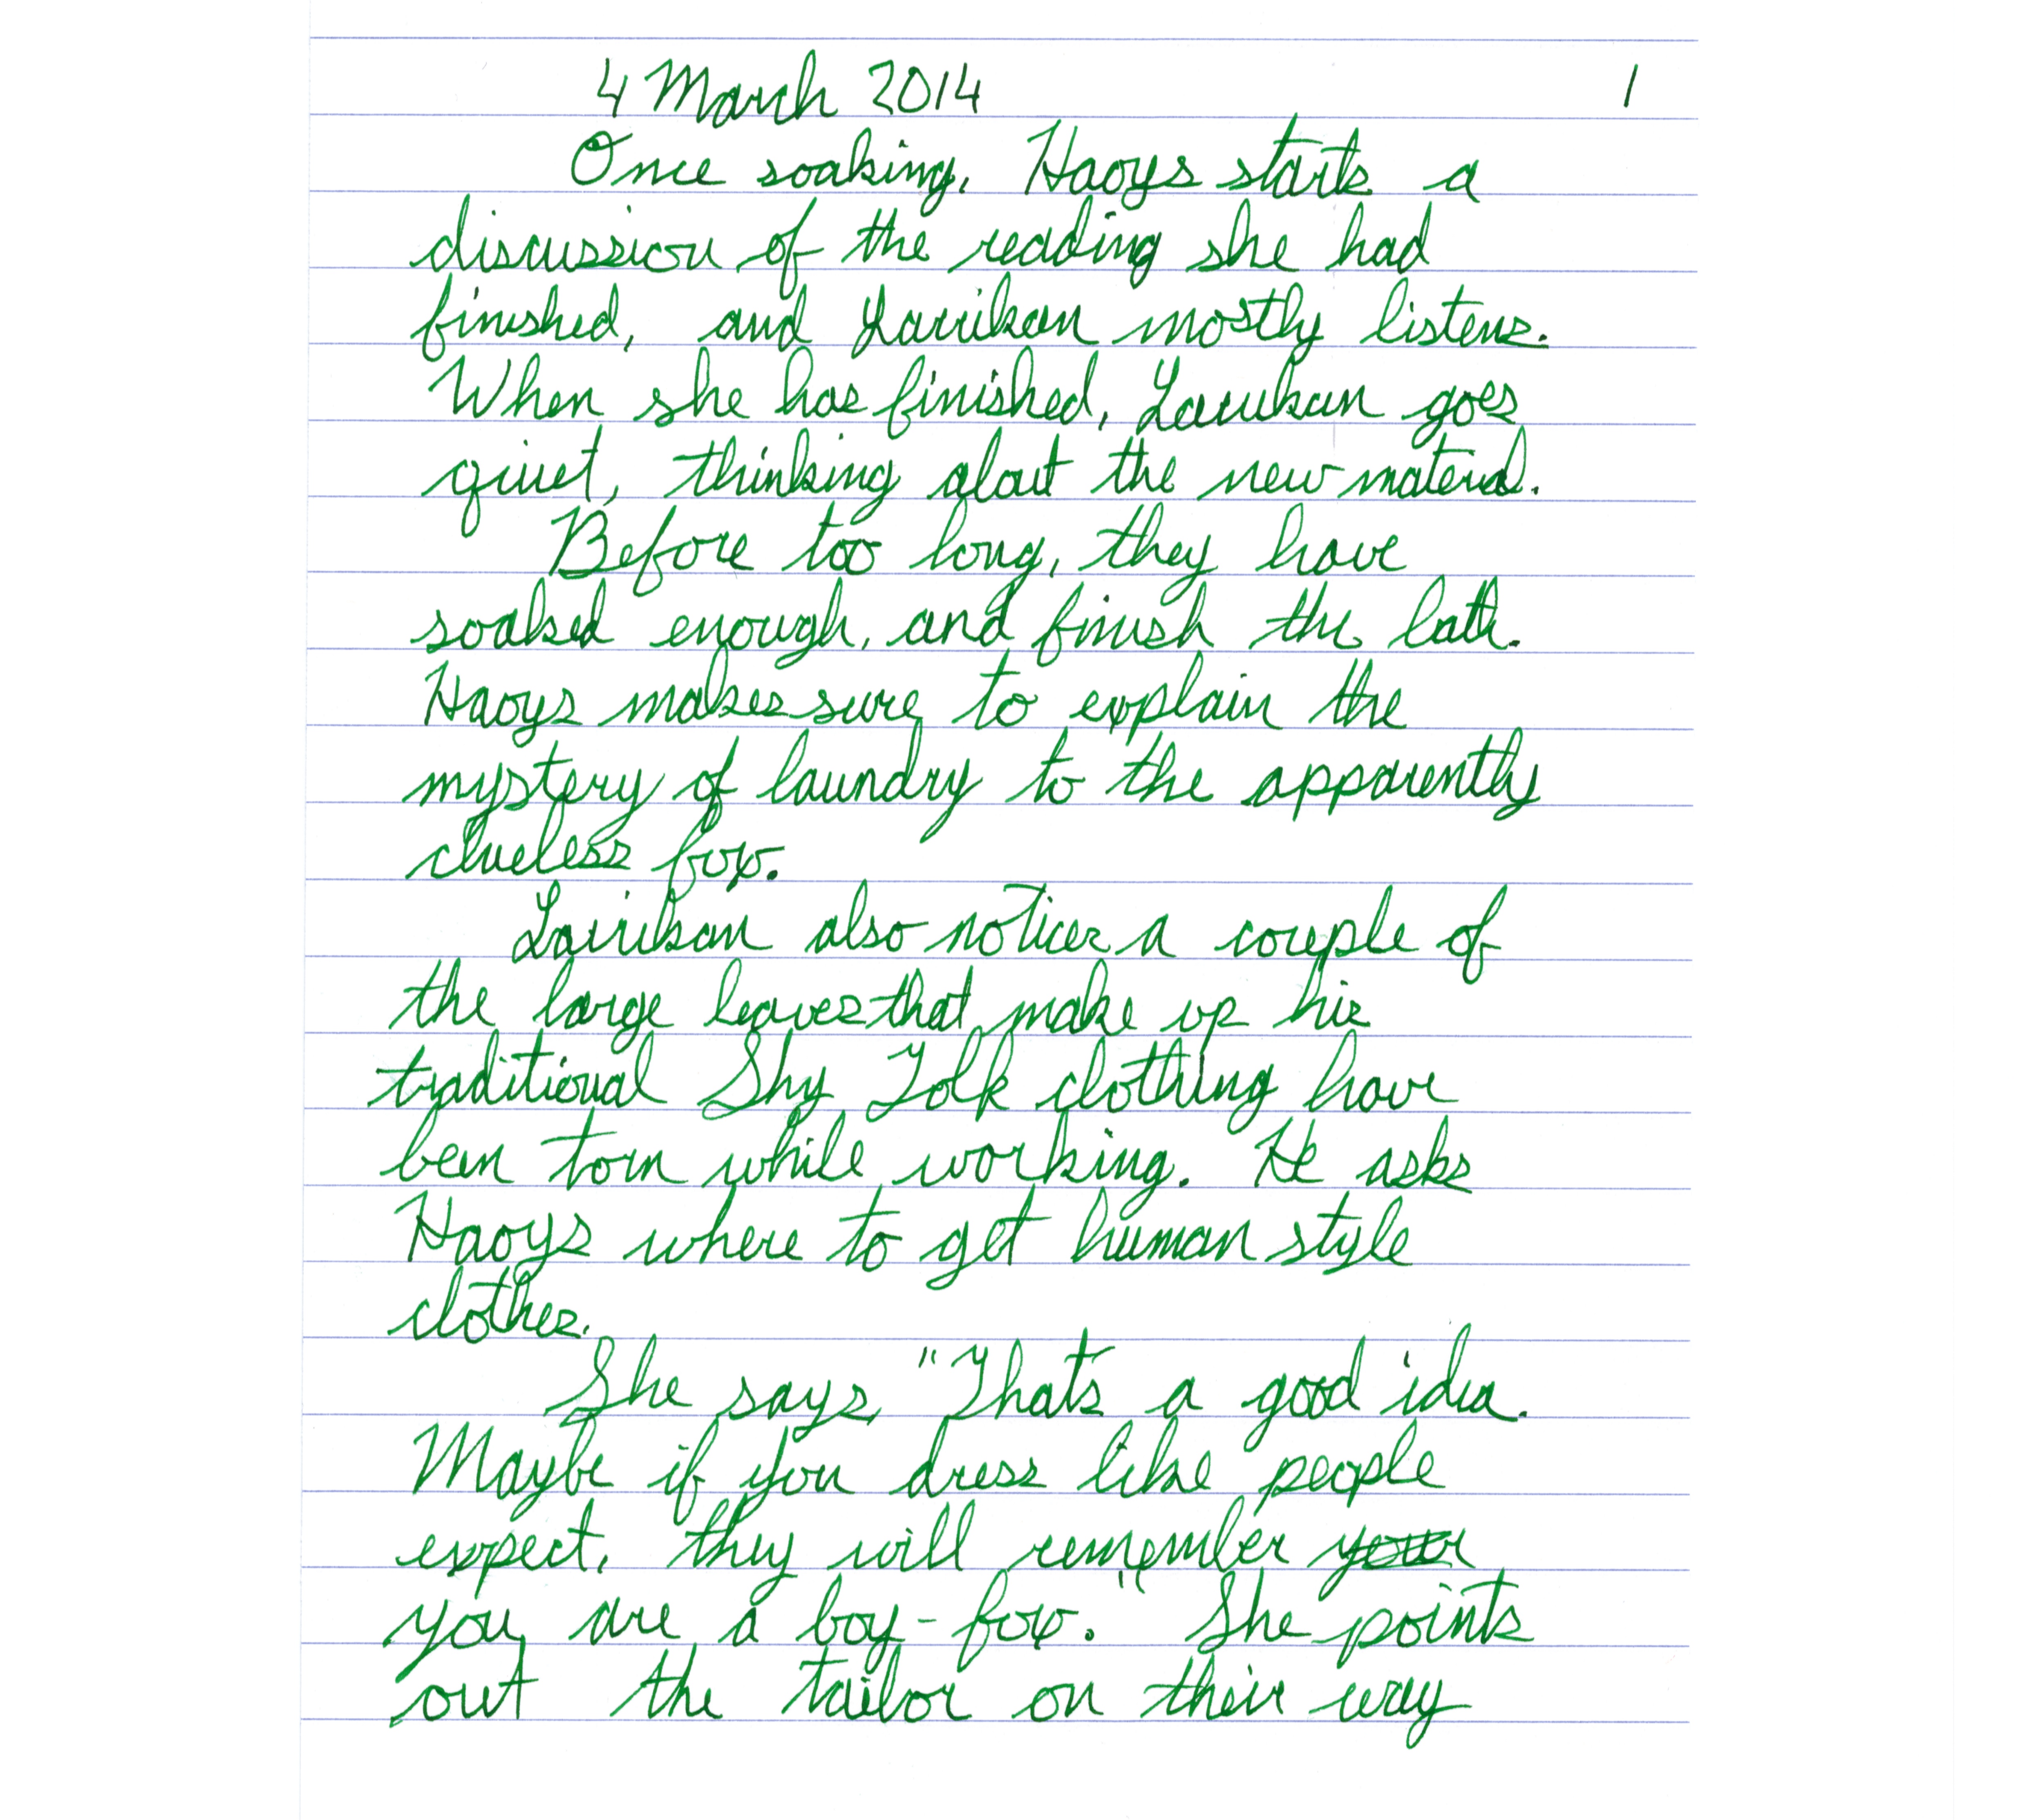 4 March 2014 1
Once soaking, Haoys starts a
discussion of the reading she had
finished, and Lavrikan mostly listens.
When she has finished, Lavrikan goes
quiet, thinking about the new material.
Before too long, they have
soaked enough, and finish the bath.
Haoys makes sure to explain the
mystery of laundry to the apparently
clueless fox.
Lavrikan also notices a couple of
the large leaves that make up his
traditional Shy Folk clothing have
been torn while working. He asks
Haoys where to get human style
clothes.
She says, "Thats a good idea.
Maybe if you dress like people
expect, they will remember your
you are a boy-fox." She points
out the tailor on their way